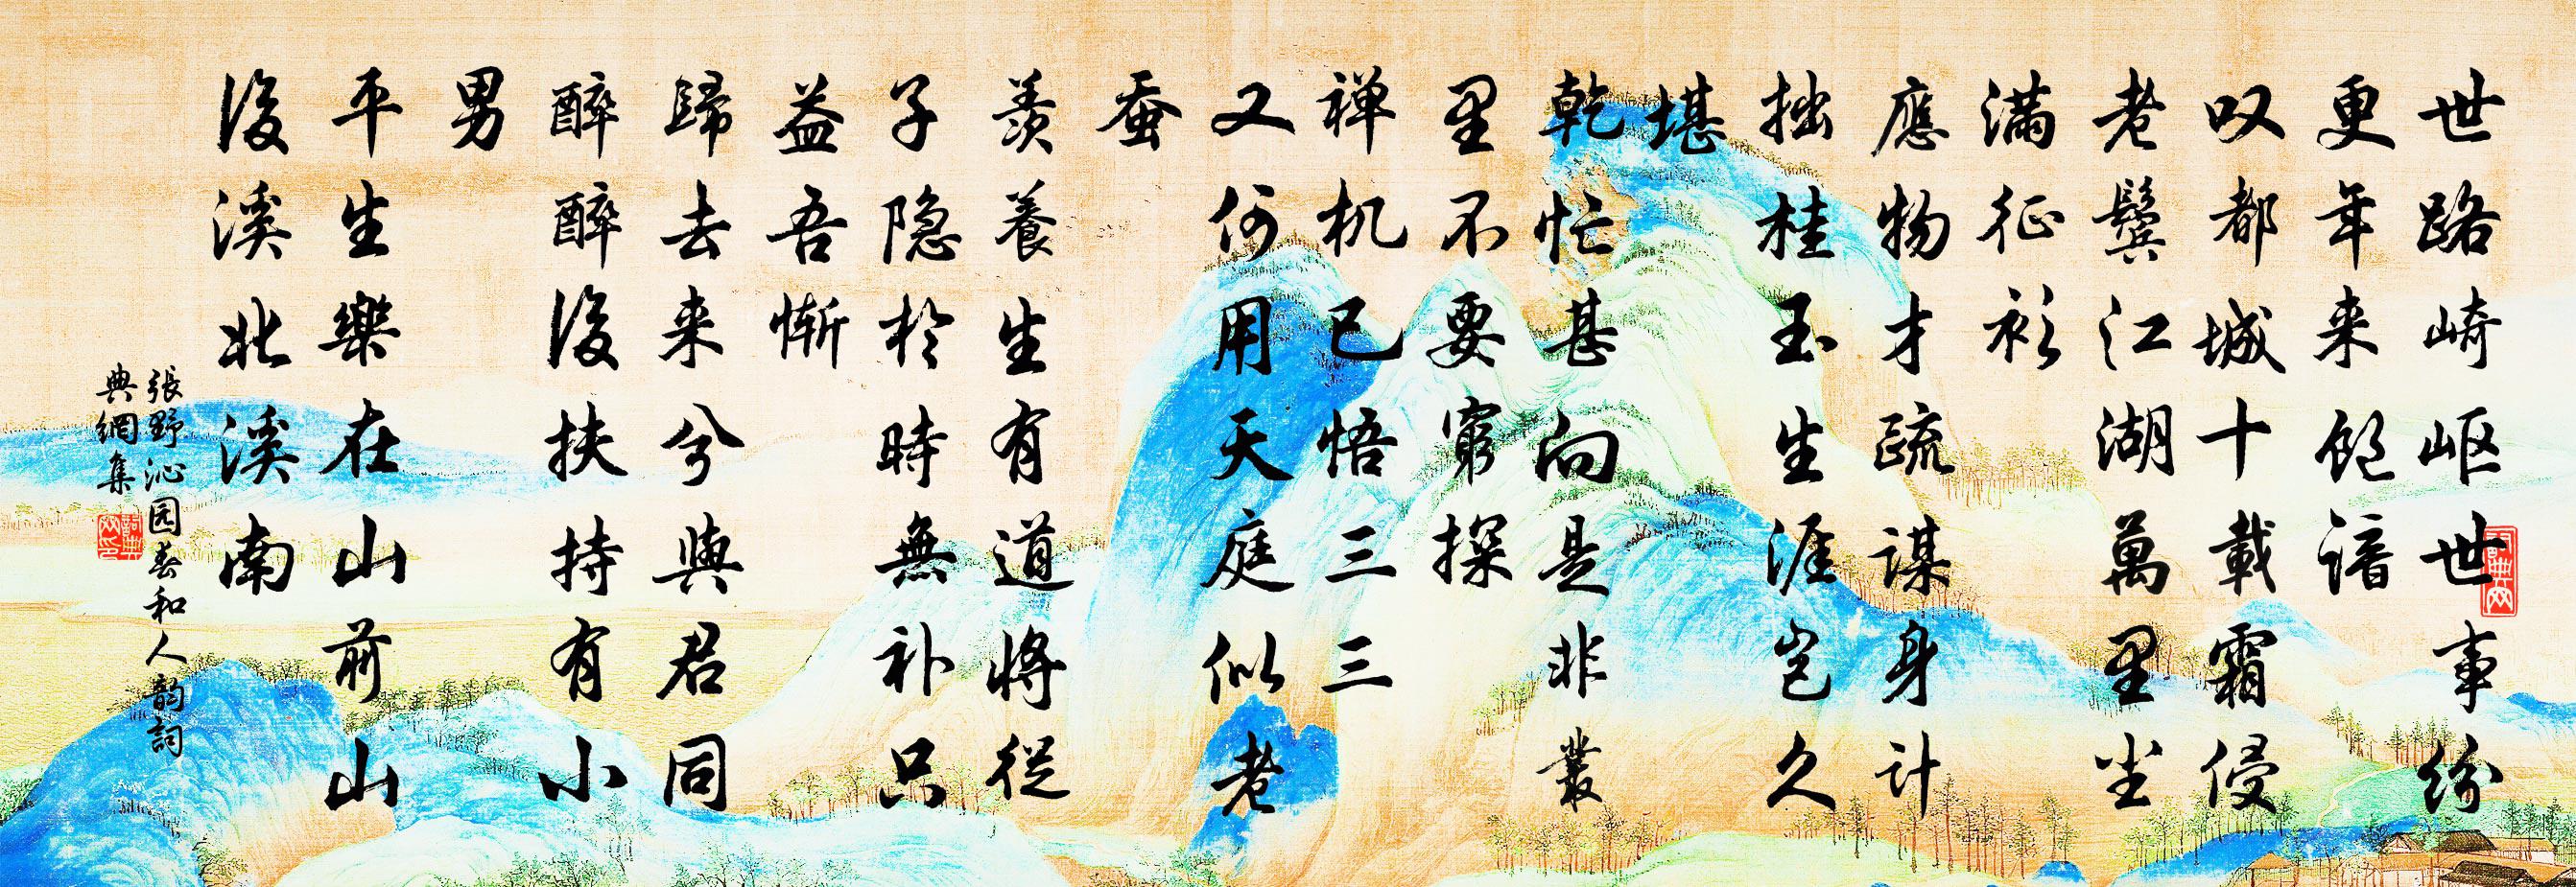 世路崎岖世事纷
更年来飽諳
叹都城十載霜侵
老鬓江湖萬里尘
满征衫
應物才疏謀身计
拙桂玉生涯岂久
堪
乾忙甚向是非叢
里不要窮探
禅机已悟三三
又何用天庭似老
蚕
羨養生有道將從
子隐於時無补只
益吾惭
歸去来兮與君同
醉醉後扶持有小
男
平生樂在山前山
後溪北溪南
張野沁园春和人韵詞
典網集